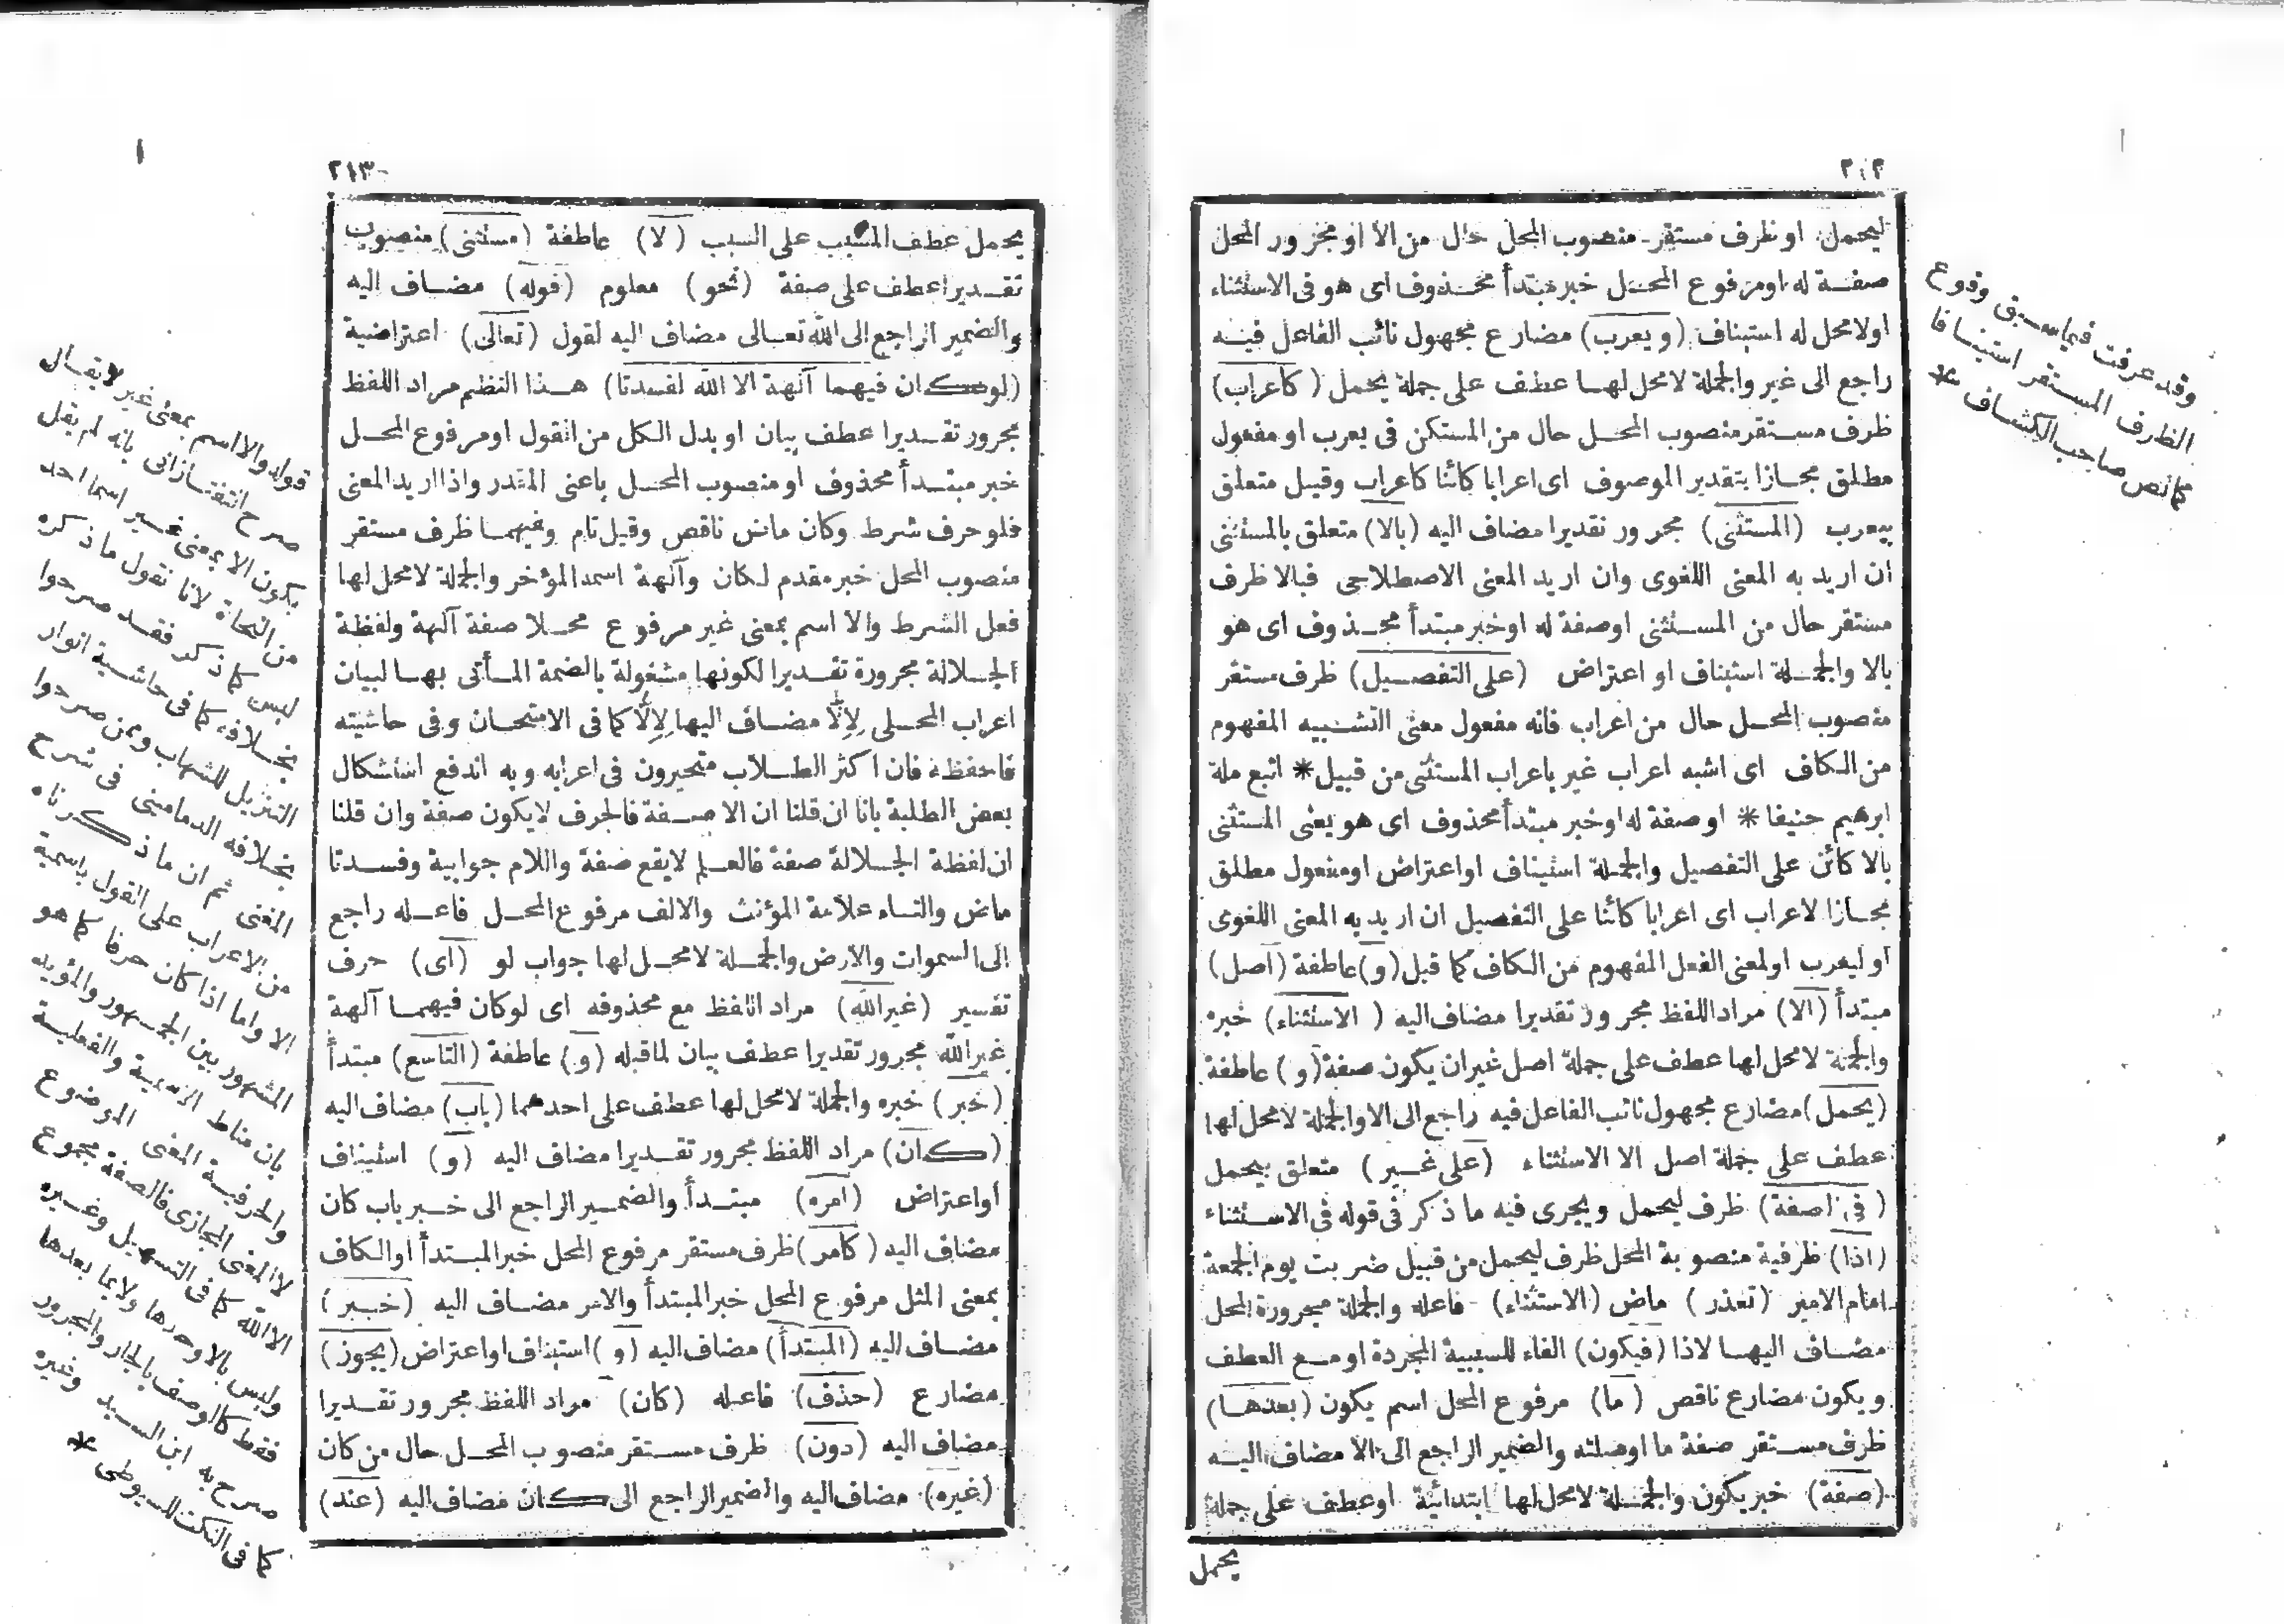 ٢١٢
ليحمل او ظرف مستقر منصوب المحل حال من الا او مجرور المحل
صفة له او مرفوع المحل خبر مبتدأ محذوف اى هو فى الاستثناء
اولا محل له استيناف (ويعرب) مضارع مجهول نائب الفاعل فيه
راجع الى غير والجملة لا محل لها عطف على جملة يحمل (كاعراب)
ظرف مستقر منصوب المحل حال من المستكن فى يعرب او مفعول
مطلق مجازا بتقدير الموصوف اى اعرابا كائنا كاعراب وقيل متعلق
بيعرب (المستثنى) مجرور تقديرا مضاف اليه (بالا) متعلق بالمستثنى
ان اريد به المعنى اللغوى وان اريد المعنى الاصطلاحى فبالا ظرف
مستقر حال من المستثنى او صفة له او خبر مبتدأ محذوف اى هو
بالا والجملة استيناف او اعتراض (على التفصيل) ظرف مستقر
منصوب المحل حال من اعراب فانه مفعول معنى التشبيه المفهوم
من الكاف اى اشبه اعراب غير باعراب المستثنى من قبيل * اتبع ملة
ابرهيم حنيفا * او صفة له او خبر مبتدأ محذوف اى هو يعنى المستثنى
بالا كائن على التفصيل والجملة استيناف او اعتراض او مفعول مطلق
مجازا لاعراب اى اعرابا كائنا على التفصيل ان اريد به المعنى اللغوى
او ليعرب او لمعنى الفعل المفهوم من الكاف كما قيل (و) عاطفة (اصل)
مبتدأ (الا) مراد اللفظ مجرور تقديرا مضاف اليه (الاستثناء) خبره
والجملة لا محل لها عطف على جملة اصل غير ان يكون صفة (و) عاطفة
(يحمل) مضارع مجهول نائب الفاعل فيه راجع الى الا والجملة لا محل لها
عطف على جملة اصل الا الاستثناء (على غير) متعلق بيحمل
(فى الصفة) ظرف ليحمل ويجرى فيه ما ذكر فى قوله فى الاستثناء
(اذا) ظرفية منصوبة المحل ظرف ليحمل من قبيل ضربت يوم الجمعة
امام الامير (تعذر) ماض (الاستثناء) فاعله والجملة مجرورة المحل
مضاف اليها لاذا (فيكون) الفاء للسببية المجردة او مع العطف
ويكون مضارع ناقص (ما) مرفوع المحل اسم يكون (بعدها)
ظرف مستقر صفة ما او صلته والضمير الراجع الى الا مضاف اليه
(صفة) خبر يكون والجملة لا محل لها ابتدائية او عطف على جملة
يحمل
وقد عرفت فيما سبق وقوع
الظرف المستقر استينافا
كما نص صاحب الكشاف *
٢١٣
يحمل عطف المسبب على السبب (لا) عاطفة (مستثنى) منصوب
تقديرا عطف على صفة (نحو) معلوم (قوله) مضاف اليه
والضمير الراجع الى الله تعالى مضاف اليه لقول (تعالى) اعتراضية
(لو كان فيهما آلهة الا الله لفسدتا) هذا النظم مراد اللفظ
مجرور تقديرا عطف بيان او بدل الكل من القول او مرفوع المحل
خبر مبتدأ محذوف او منصوب المحل باعنى المقدر واذا اريد المعنى
فلو حرف شرط وكان ماض ناقص وقيل تام وفيهما ظرف مستقر
منصوب المحل خبر مقدم لكان وآلهة اسمه المؤخر والجملة لا محل لها
فعل الشرط والا اسم بمعنى غير مرفوع محلا صفة آلهة ولفظة
الجلالة مجرورة تقديرا لكونها مشغولة بالضمة المأتى بها لبيان
اعراب المحلى لالا مضاف اليها لالا كما فى الامتحان وفى حاشيته
فاحفظه فان اكثر الطلاب متحيرون فى اعرابه وبه اندفع استشكال
بعض الطلبة بانا ان قلنا ان الا صفة فالحرف لا يكون صفة وان قلنا
ان لفظة الجلالة صفة فالعلم لا يقع صفة واللام جوابية وفسدتا
ماض والتاء علامة المؤنث والالف مرفوع المحل فاعله راجع
الى السموات والارض والجملة لا محل لها جواب لو (اى) حرف
تفسير (غير الله) مراد اللفظ مع محذوفه اى لو كان فيهما آلهة
غير الله مجرور تقديرا عطف بيان لما قبله (و) عاطفة (التاسع) مبتدأ
(خبر) خبره والجملة لا محل لها عطف على احدهما (باب) مضاف اليه
(كان) مراد اللفظ مجرور تقديرا مضاف اليه (و) استيناف
او اعتراض (امره) مبتدأ والضمير الراجع الى خبر باب كان
مضاف اليه (كامر) ظرف مستقر مرفوع المحل خبر المبتدأ او الكاف
بمعنى المثل مرفوع المحل خبر المبتدأ والامر مضاف اليه (خبر)
مضاف اليه (المبتدأ) مضاف اليه (و) استيناف او اعتراض (يجوز)
مضارع (حذف) فاعله (كان) مراد اللفظ مجرور تقديرا
مضاف اليه (دون) ظرف مستقر منصوب المحل حال من كان
(غيره) مضاف اليه والضمير الراجع الى كان مضاف اليه (عند)
قوله والا اسم بمعنى غير لا يقال
صرح التفتازانى بانه لم يقل
بكون الا بمعنى غير اسما احد
من النحاة لانا نقول ما ذكره
ليس كما ذكر فقد صرحوا
بخلافه كما فى حاشية انوار
التنزيل للشهاب وممن صرحوا
بخلافه الدمامينى فى شرح
المغنى ثم ان ما ذكرناه
من الاعراب على القول باسمية
الا واما اذا كان حرفا كما هو
المشهور بين الجمهور والمؤيد
بان مناط الاسمية والفعلية
والحرفية المعنى الموضوع
لا المعنى المجازى فالصفة مجموع
الا الله كما فى التسهيل وغيره
وليس بالا وحدها ولا بما بعدها
فقط كالوصف بالجار والمجرور
صرح به ابن السيد وغيره
كما فى النكت للسيوطى *